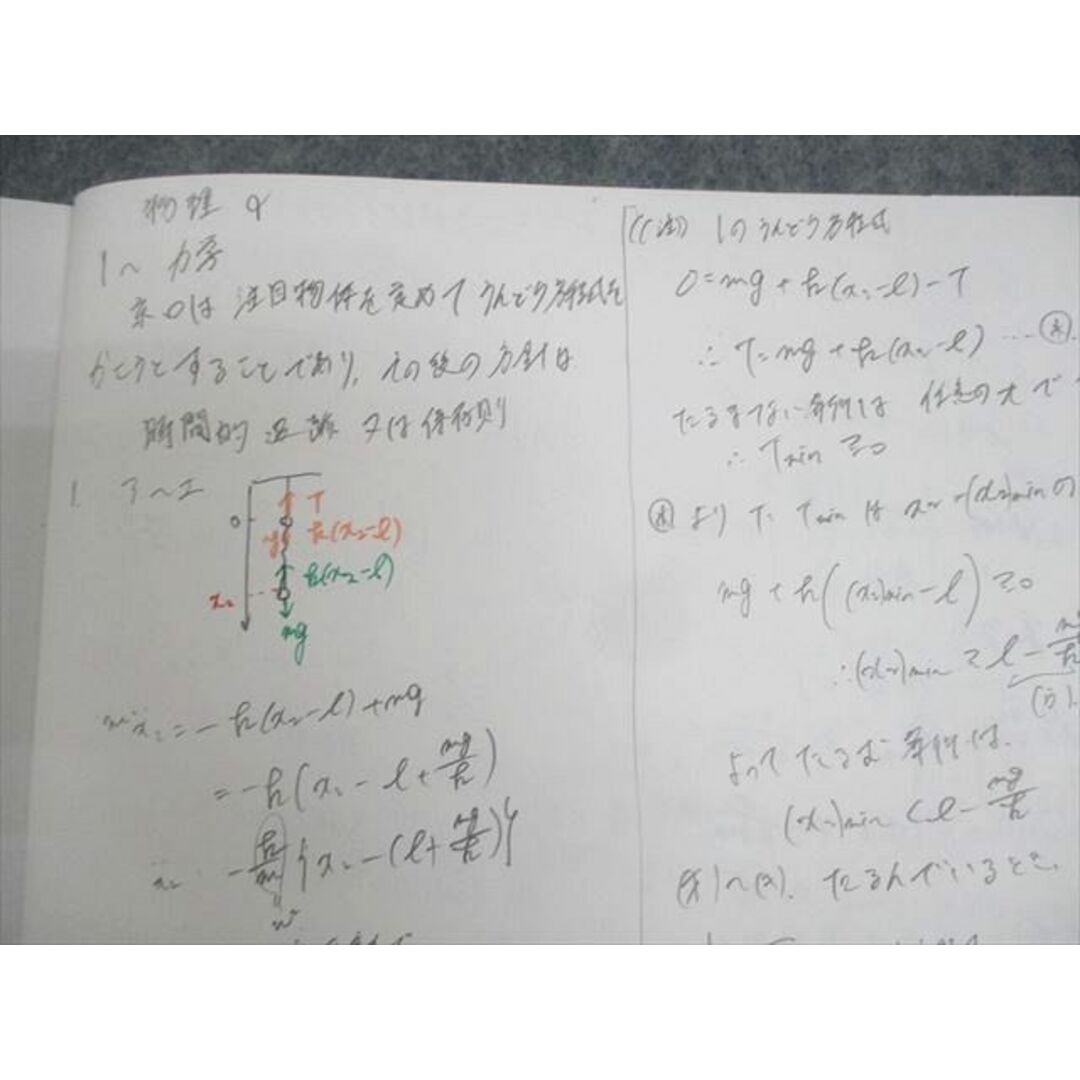 物理 α
1〜 力学
は 注目物体を定めて うんどう方程式を
することであり、その後の方針は
時間的追跡 又は保存則
1. ア〜エ
T
0
k(x₂-l)
k(x₂-l)
x₂
mg
mẍ₂ = -k(x₂-l)+mg
= -k(x₂ - l + mg/k)
-k/m {x₂ - (l + mg/k)}
1のうんどう方程式
0 = mg + k(x₂-l) - T
∴ T = mg + k(x₂-l) …
たるまない条件は 任意の で
∴ Tmin ≧ 0
より T Tmin は (x₂)min の
mg + k((x₂)min - l) ≧ 0
∴ (x₂)min ≧ l - mg/k
よって たるむ 条件は、
(x₂)min < l - mg/k
たるんでいるとき、